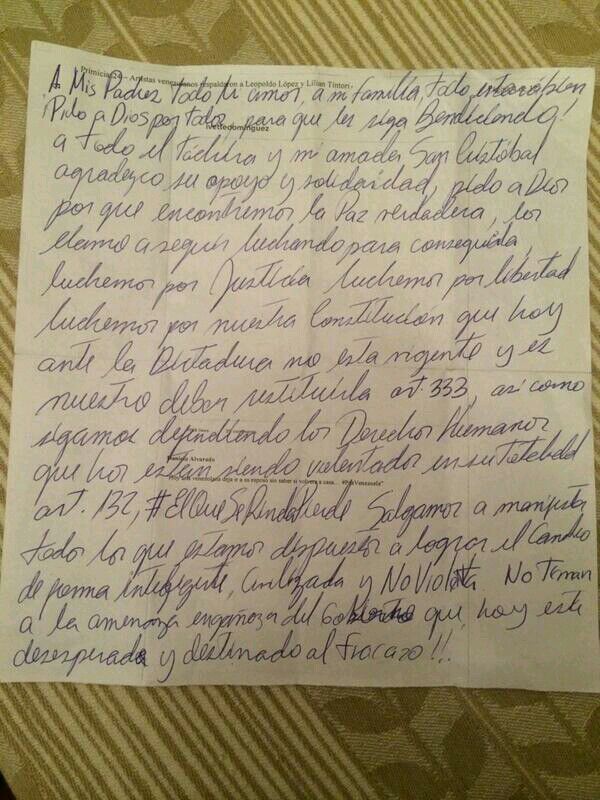 Primicias24 – Artistas venezolanos respaldaron a Leopoldo López y Lilian Tintori
A Mis Padres todo mi amor, a mi familia, todo estará bien
¡Pido a Dios por todos, para que les siga Bendiciendo!
ivettedominguez
a todo el Táchira y mi amada San Cristóbal
agradezco su apoyo y solidaridad, pido a Dios
por que encontremos la Paz verdadera, los
llamo a seguir luchando para conseguirla,
luchemos por Justicia luchemos por libertad
luchemos por nuestra Constitución que hoy
ante la Dictadura no esta vigente y es
nuestro deber restituirla art 333, así como
sigamos defendiendo los Derechos Humanos
Daniela Alvarado
que hoy estan siendo violentados en su totalidad
Hoy una venezolana deja ir a su esposo sin saber si volverá a casa.
art. 132, #ElQueSeRindaPierde Salgamos a manifestar
todos los que estamos dispuestos a lograr el Cambio
de forma inteligente, Civilizada y No Violenta. No Teman
a la amenaza engañoza del Gobierno que hoy esta
desesperado y destinado al fracazo!!.